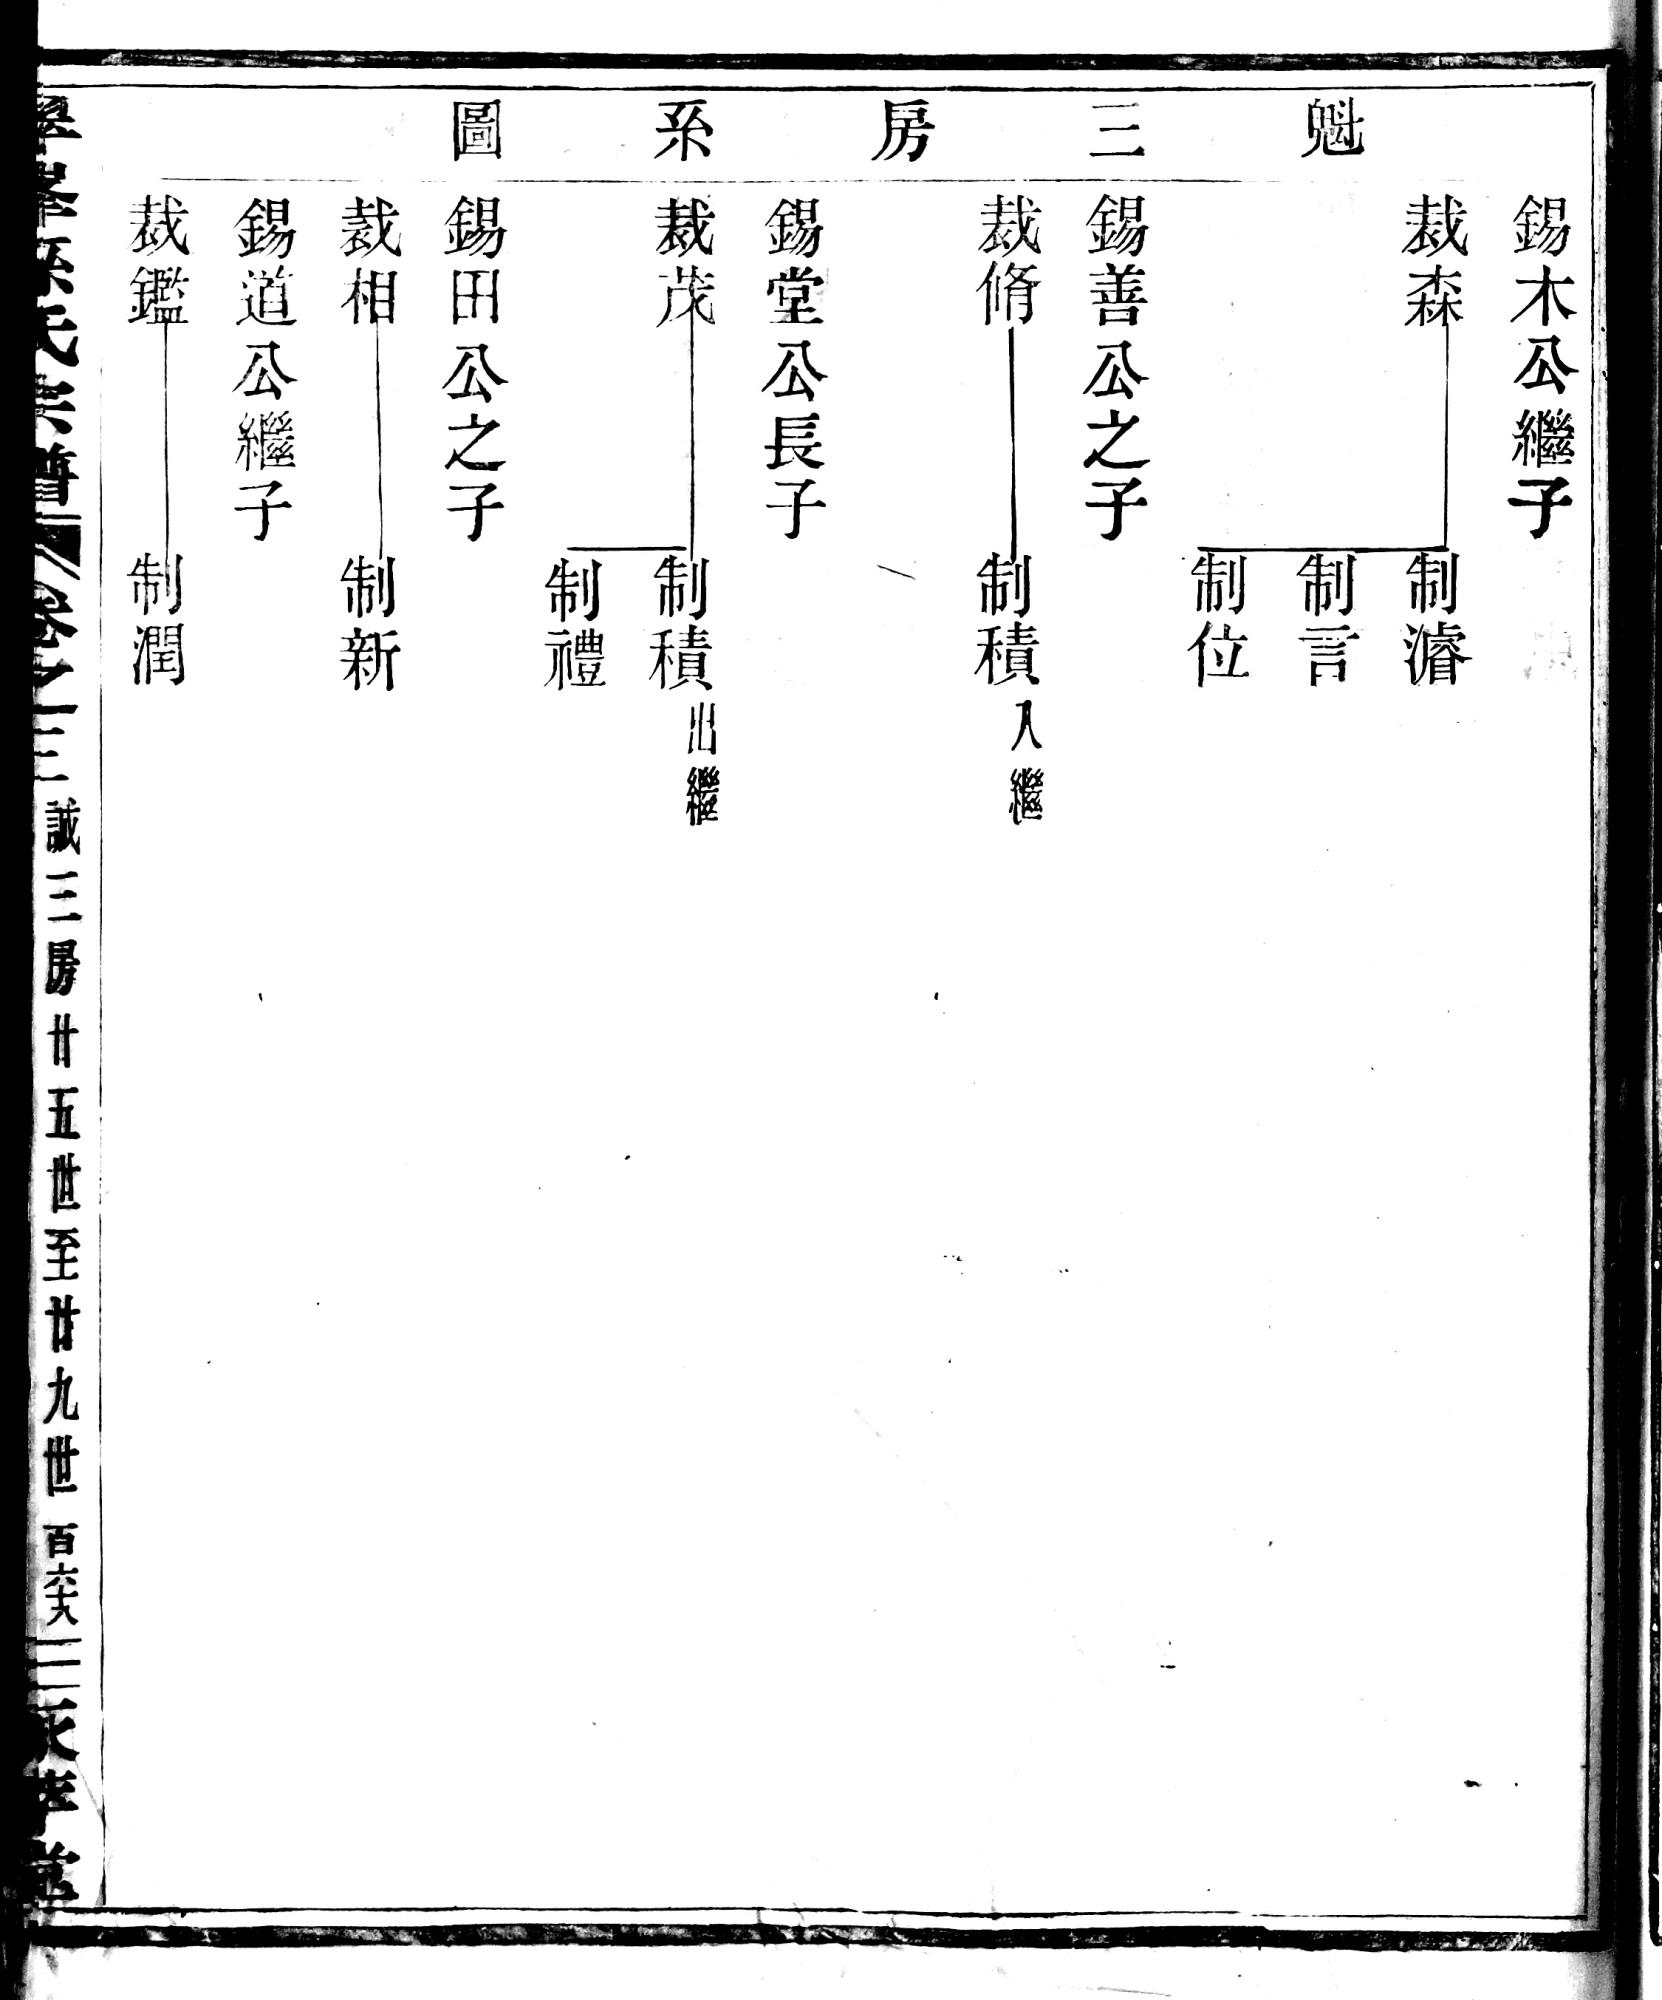 魁三房系圖
錫木公繼子
裁森
制濬
制言
制位
錫善公之子
裁脩
制積入繼
錫堂公長子
裁茂
制積出繼
制禮
錫田公之子
裁相
制新
錫道公繼子
裁鑑
制潤
氏宗譜 卷之三 誠三房廿五世至廿九世 百六十八